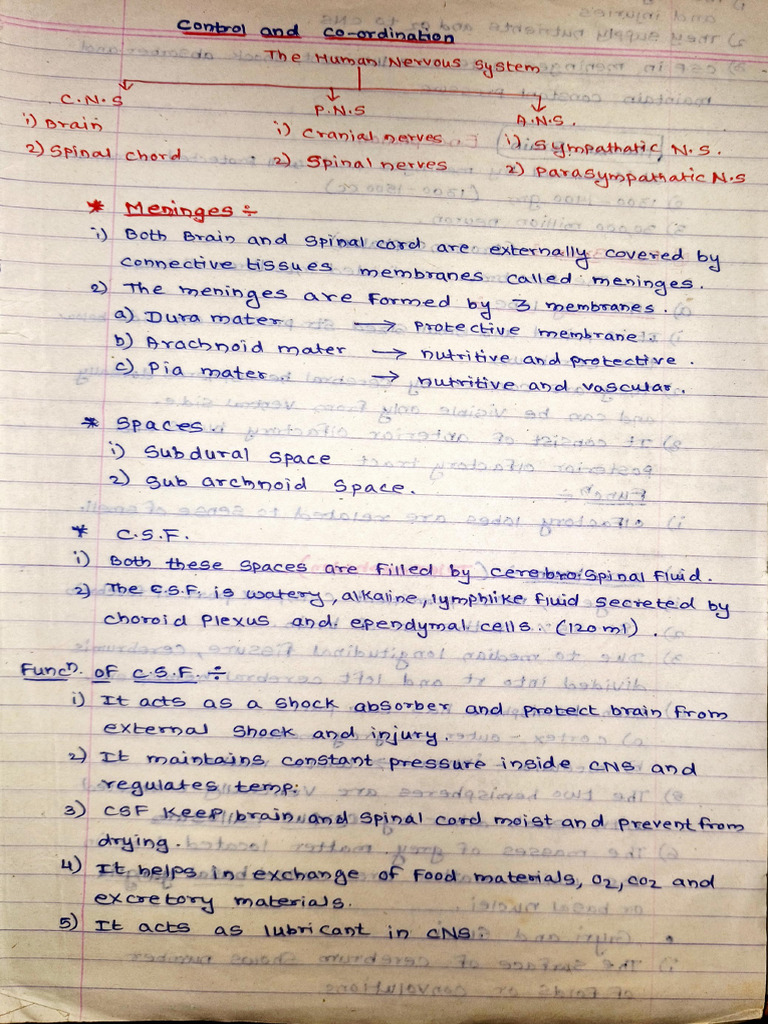 Control and co-ordination
The Human Nervous System
C.N.S P.N.S A.N.S.
1) Brain 1) Cranial nerves. 1) Sympathatic N.S.
2) Spinal chord 2) Spinal nerves 2) Parasympathatic N.S
* Meninges ÷
1) Both Brain and spinal cord are externally covered by
connective tissues membranes called meninges.
2) The meninges are formed by 3 membranes.
a) Dura mater → Protective membrane.
b) Arachnoid mater → nutritive and protective.
c) Pia mater → nutritive and vascular.
* Spaces.
1) Subdural space
2) Sub archnoid space.
* C.S.F.
1) Both these spaces are filled by cerebrospinal fluid.
2) The C.S.F. is watery, alkaline, lymphlike fluid secreted by
choroid plexus and ependymal cells. (120 ml).
Funcⁿ. of C.S.F. ÷
1) It acts as a shock absorber and protect brain from
external shock and injury.
2) It maintains constant pressure inside CNS and
regulates temp:
3) CSF keep brain and spinal cord moist and prevent from
drying.
4) It helps in exchange of food materials, O2, CO2 and
excretory materials.
5) It acts as lubricant in CNS.